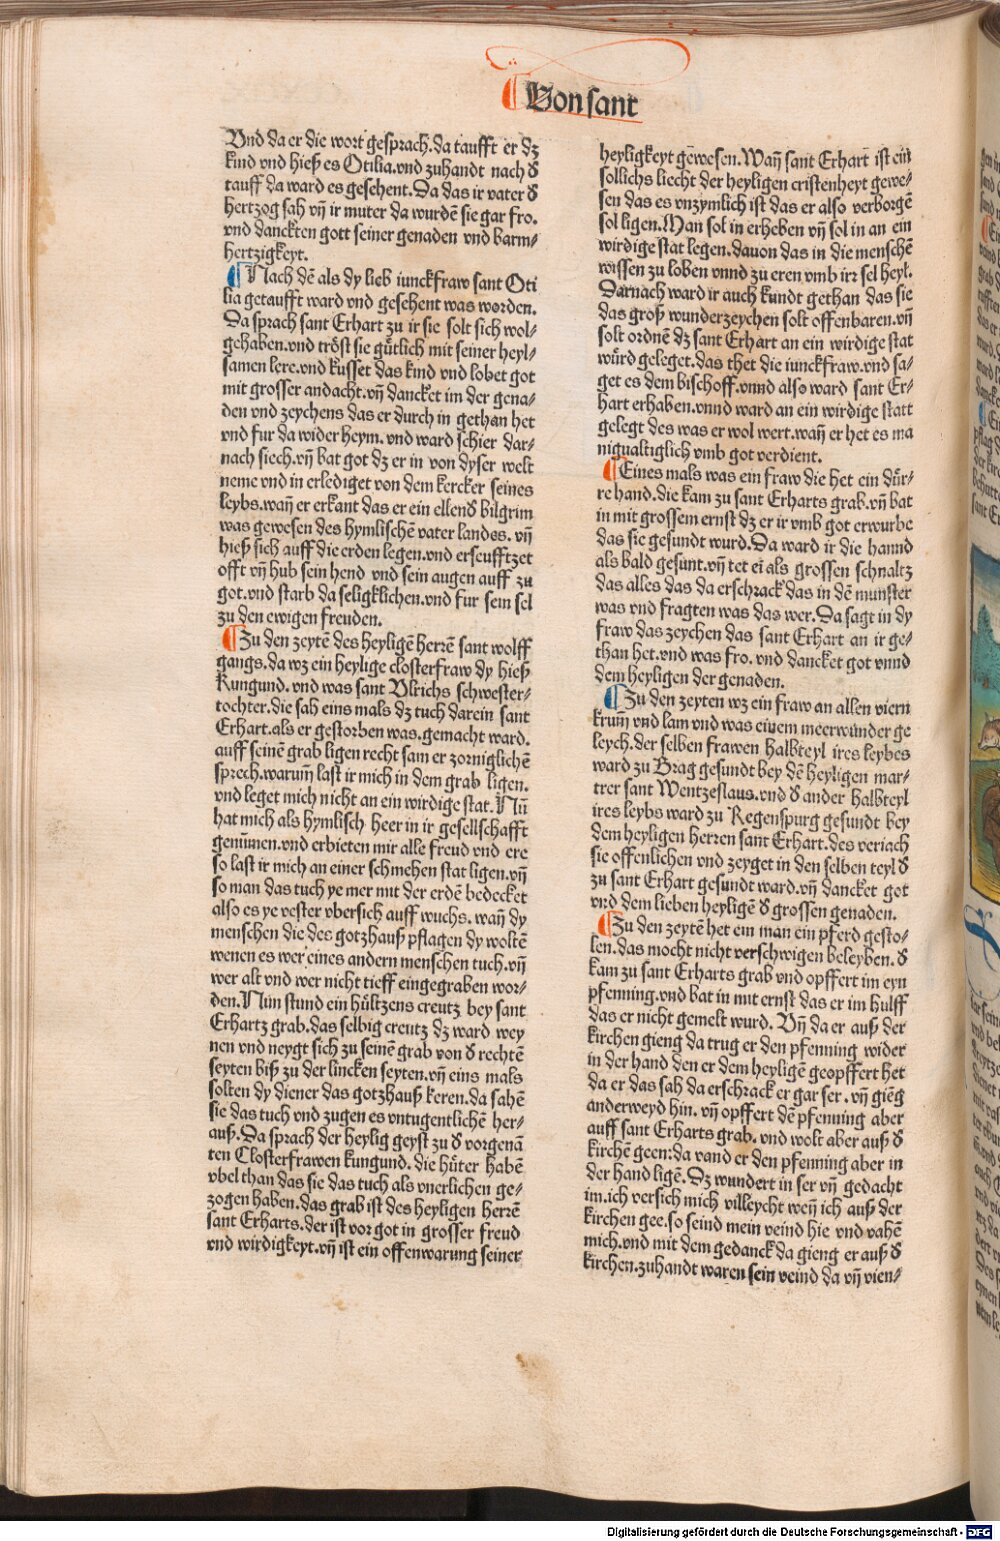 Von sant
Vnd da er die wort gesprach. da taufft er dz
kind vnd hieß es Otilia. vnd zuhandt nach d̕
tauff da ward es gesehent. Da das ir vater d̕
hertzog sah vn̄ ir muter da wurdē sie gar fro.
vnd danckten gott seiner genaden vnd barm⸗
hertzigkeyt.
¶ Nach dē als dy lieb iunckfraw sant Oti
lia getaufft ward vnd gesehent was worden.
Da sprach sant Erhart zu ir sie solt sich wol⸗
gehaben. vnd tröst sie gütlich mit seiner heyl⸗
samen lere. vnd kusset das kind vnd lobet got
mit grosser andacht. vn̄ dancket im der gena⸗
den vnd zeychens das er durch in gethan het
vnd fur da wider heym. vnd ward schier dar⸗
nach siech. vn̄ bat got dz er in von dyser welt
neme vnd in erlediget von dem kercker seines
leybs. wan̄ er erkant das er ein ellend̕ bilgrim
was gewesen des hymlischē vater landes. vn̄
hieß sich auff die erden legen. vnd erseufftzet
offt vn̄ hub sein hend vnd sein augen auff zu
got. vnd starb da seligklichen. vnd fur sein sel
zu den ewigen freuden.
¶ Zu den zeytē des heyligē herrē sant wolff
gangs. da wz ein heylige closterfraw dy hieß
Kungund. vnd was sant Vlrichs schwester⸗
tochter. die sah eins mals dz tuch darein sant
Erhart. als er gestorben was. gemacht ward.
auff seinē grab ligen recht sam er zorniglichē
sprech. warum̄ last ir mich in dem grab ligen.
vnd leget mich nicht an ein wirdige stat. Nū
hat mich als hymlisch heer in ir gesellschafft
genūmen. vnd erbieten mir alle freud vnd ere
so last ir mich an einer schmehen stat ligen. vn̄
so man das tuch ye mer mit der erdē bedecket
also es ye vester vbersich auff wuchs. wan̄ dy
menschen die des gotzhauß pflagen dy woltē
wenen es wer eines andern menschen tuch. vn̄
wer alt vnd wer nicht tieff eingegraben wor⸗
den. Nun stund ein hültzens creutz bey sant
Erhartz grab. das selbig creutz dz ward wey
nen vnd neygt sich zu seinē grab von d̕ rechtē
seyten biß zu der lincken seyten. vn̄ eins mals
solten dy diener das gotzhauß keren. da sahē
sie das tuch vnd zugen es vntugentlichē her⸗
auß. Da sprach der heylig geyst zu d̕ vorgenā
ten Closterfrawen kungund. die hüter habē
vbel than das sie das tuch als vnerlichen ge⸗
zogen haben. das grab ist des heyligen herrē
sant Erharts. der ist vor got in grosser freud
vnd wirdigkeyt. vn̄ ist ein offenwarung seiner
heyligkeyt gewesen. Wan̄ sant Erhart ist ein
sollichs liecht der heyligen cristenheyt gewe⸗
sen das es vnzymlich ist das er also verborgē
sol ligen. Man sol in erheben vn̄ sol in an ein
wirdige stat legen. dauon das in die menschē
wissen zu loben vnnd zu eren vmb irr sel heyl.
Darnach ward ir auch kundt gethan das sie
das groß wunderzeychen solt offenbaren. vn̄
solt ordnē dz sant Erhart an ein wirdige stat
würd geleget. das thet die iunckfraw. vnd sa⸗
get es dem bischoff. vnnd also ward sant Er⸗
hart erhaben. vnnd ward an ein wirdige statt
gelegt des was er wol wert. wan̄ er het es ma
nigualtiglich vmb got verdient.
¶ Eines mals was ein fraw die het ein dür⸗
re hand. die kam zu sant Erharts grab. vn̄ bat
in mit grossem ernst dz er ir vmb got erwurbe
das sie gesundt wurd. Da ward ir die hannd
als bald gesunt. vn̄ tet ei als grossen schnaltz
das alles das da erschrack das in dē munster
was vnd fragten was das wer. Da sagt in dy
fraw das zeychen das sant Erhart an ir ge⸗
than het. vnd was fro. vnd dancket got vnnd
dem heyligen der genaden.
¶ Zu den zeyten wz ein fraw an allen viern
krum̄ vnd lam vnd was einem meerwunder ge
leych. der selben frawen halbteyl ires leybes
ward zu Brag gesundt bey dē heyligen mar⸗
trer sant Wentzeslaus. vnd d̕ ander halbteyl
ires leybs ward zu Regenspurg gesundt bey
dem heyligen herren sant Erhart. des veriach
sie offenlichen vnd zeyget in den selben teyl d̕
zu sant Erhart gesundt ward. vn̄ dancket got
vnd dem lieben heyligē d̕ grossen genaden.
¶ Zu den zeytē het ein man ein pferd gesto⸗
len. das mocht nicht verschwigen beleyben. d̕
kam zu sant Erharts grab vnd opffert im eyn
pfenning. vnd bat in mit ernst das er im hulff
das er nicht gemelt wurd. Vn̄ da er auß der
kirchen gieng da trug er den pfenning wider
in der hand den er dem heyligē geopffert het
da er das sah da erschrack er gar ser. vn̄ giēg
anderweyd hin. vn̄ opffert dē pfenning aber
auff sant Erharts grab. vnd wolt aber auß d̕
kirchē geen: da vand er den pfenning aber in
der hand ligē. Dz wundert in ser vn̄ gedacht
im. ich versich mich villeycht wen̄ ich auß der
kirchen gee. so seind mein veind hie vnd vahē
mich. vnd mit dem gedanck da gieng er auß d̕
kirchen. zuhandt waren sein veind da vn̄ vien⸗
Digitalisierung gefördert durch die Deutsche Forschungsgemeinschaft - DFG